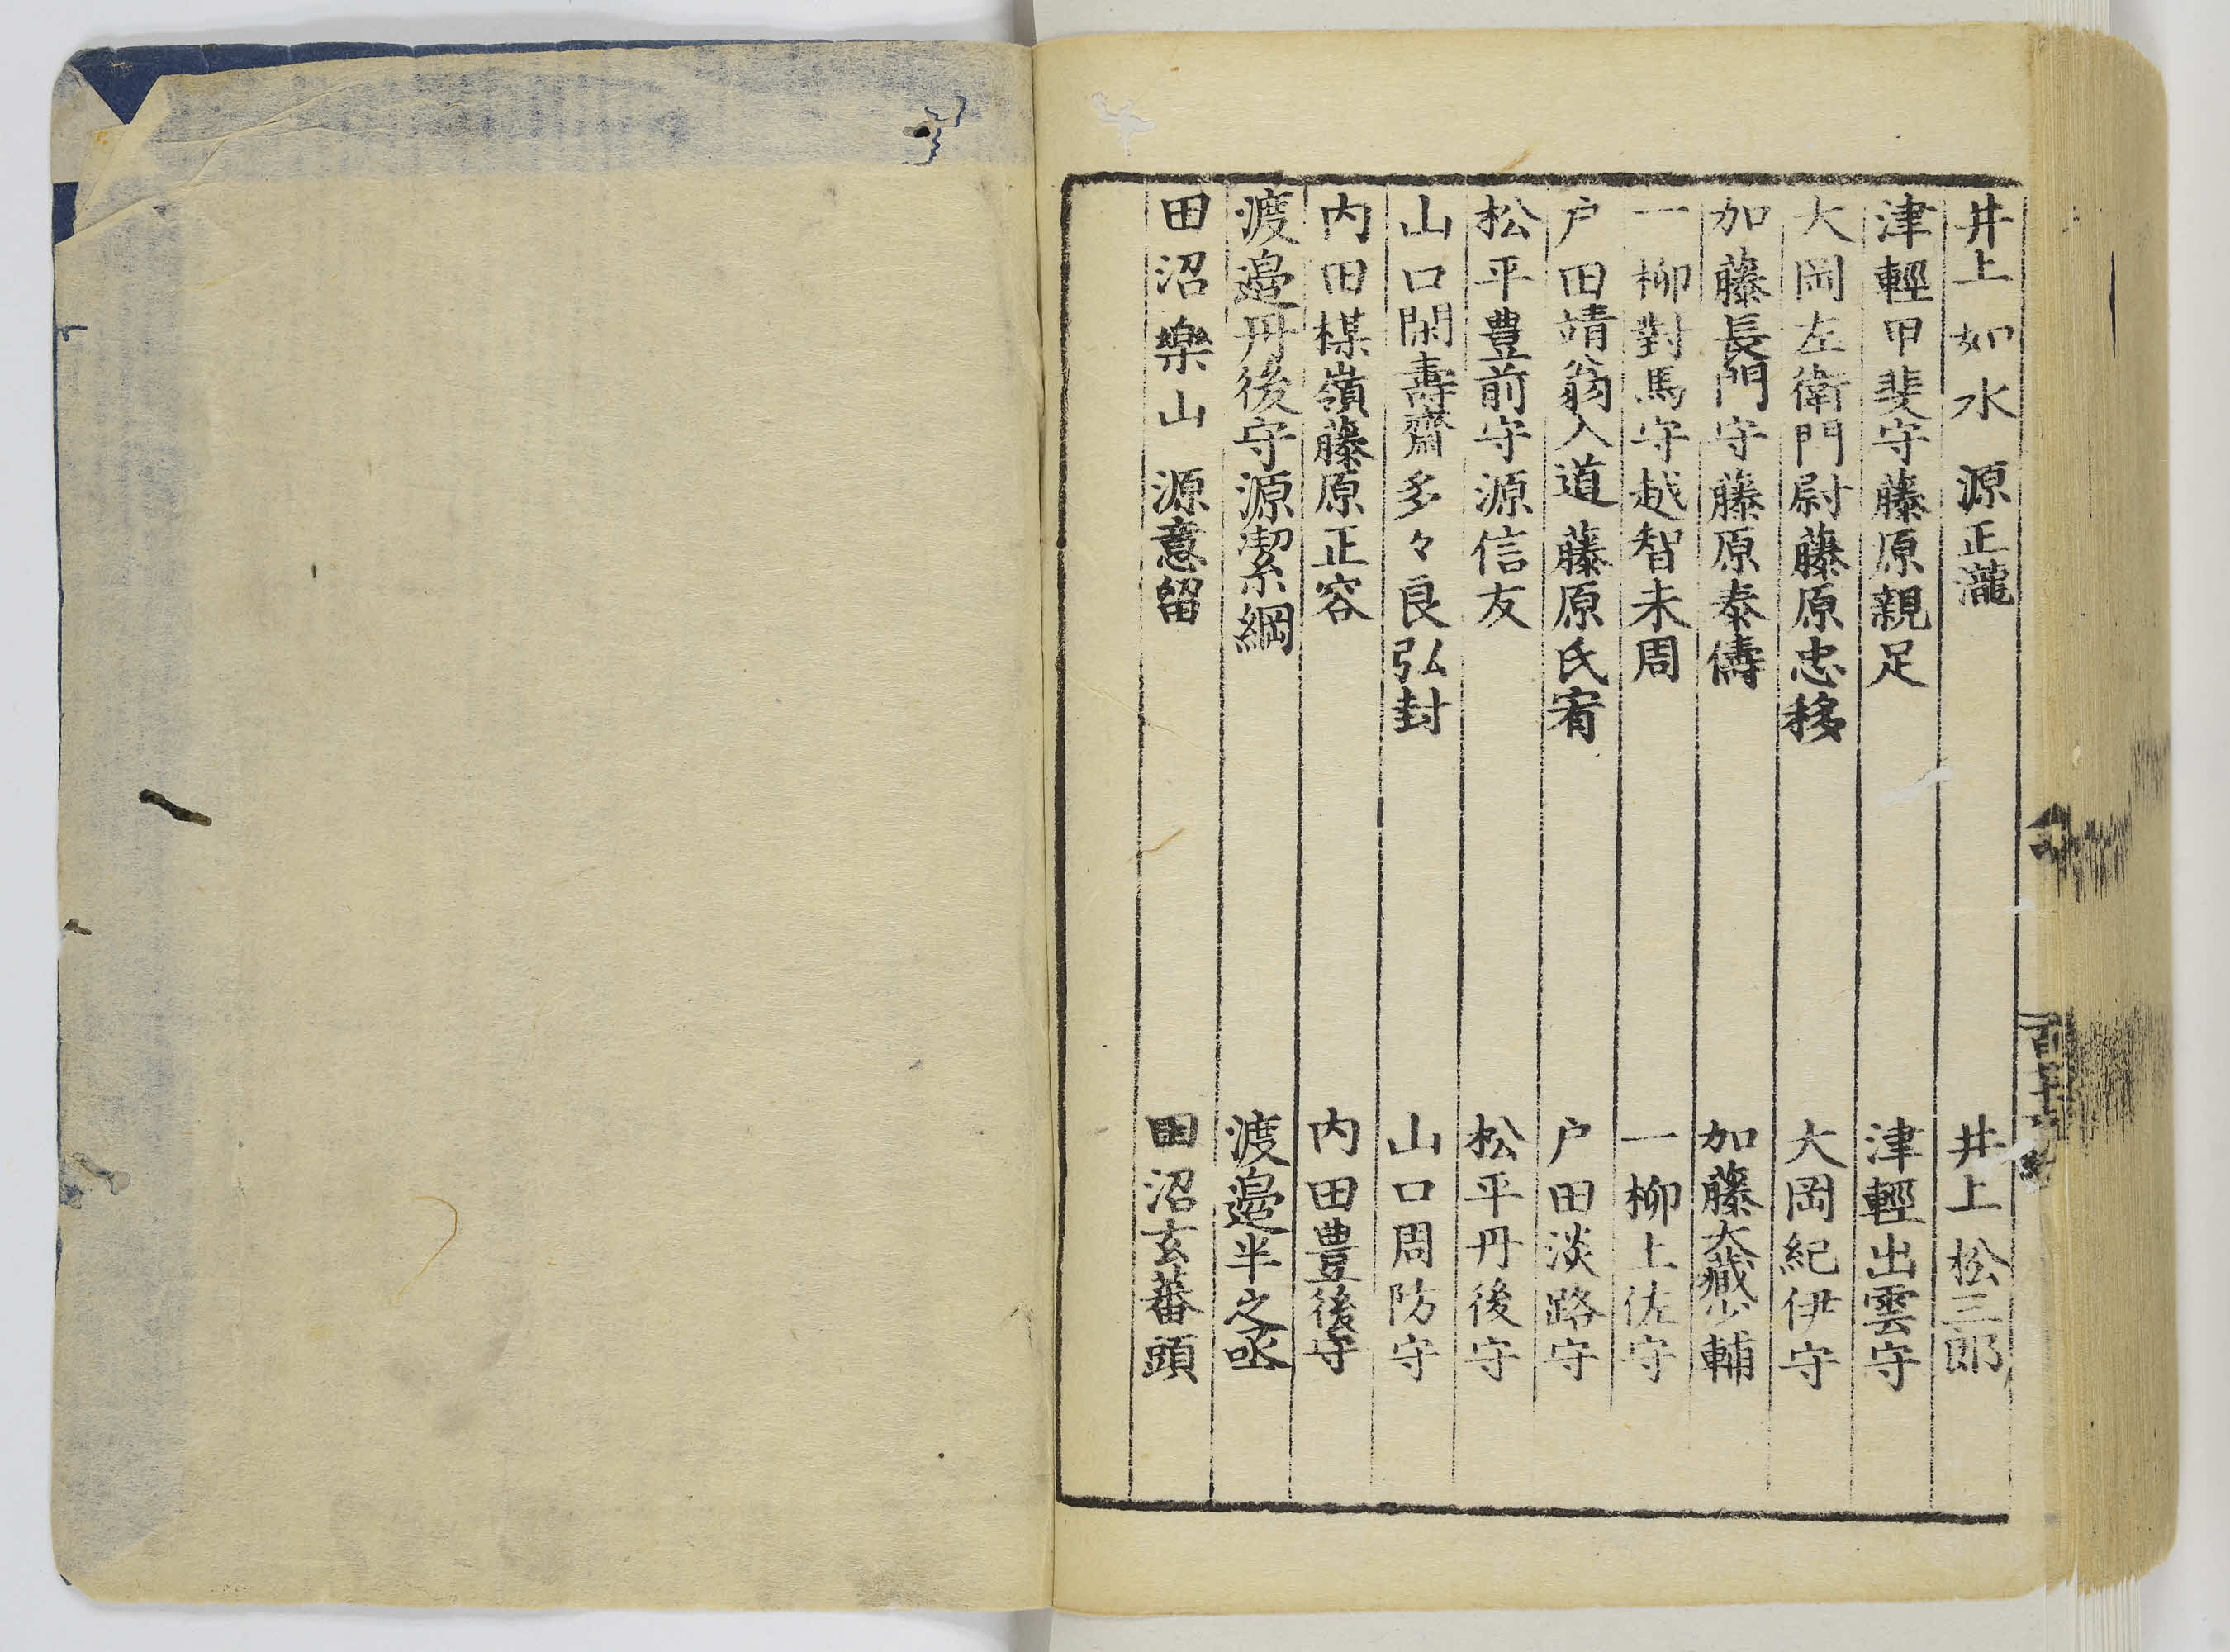 井上如水　源正瀧　井上松三郎
津輕甲斐守藤原親足　津輕出雲守
大岡左衛門尉藤原忠移　大岡紀伊守
加藤長門守藤原泰儔　加藤大藏少輔
一柳對馬守越智末周　一柳土佐守
戸田靖翁入道藤原氏宥　戸田淡路守
松平豊前守源信友　松平丹後守
山口閑壽齋多々良弘封　山口周防守
内田楳嶺藤原正容　内田豊後守
渡邉丹後守源潔綱　渡邉半之丞
田沼樂山　源意留　田沼玄蕃頭